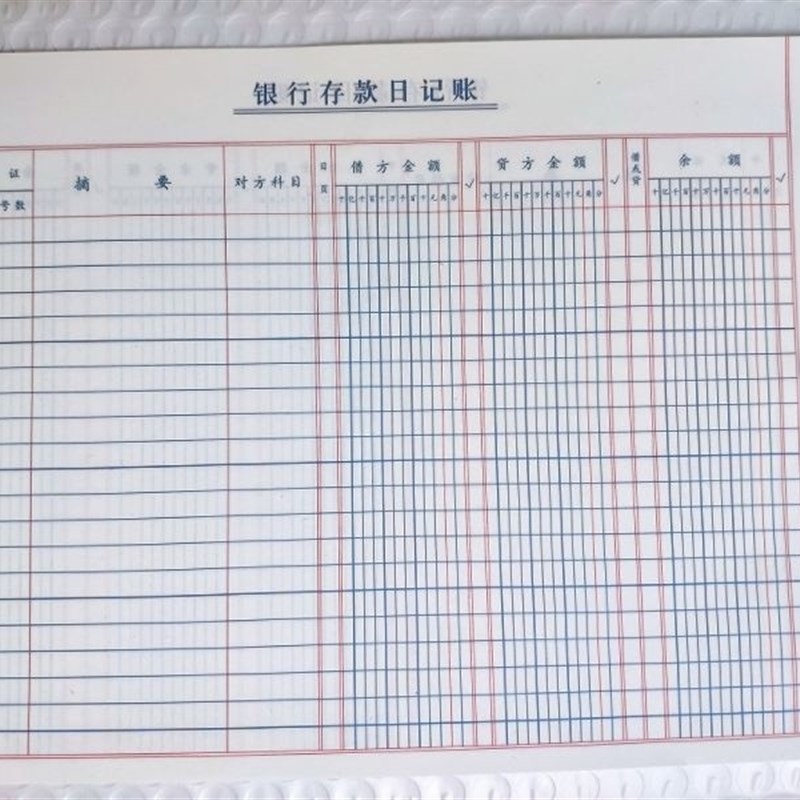 银行存款日记账
证 摘要 对方科目 日页 借方金额 ✓ 贷方金额 ✓ 借或贷 余额 ✓
号数 十亿千百十万千百十元角分 十亿千百十万千百十元角分 十亿千百十万千百十元角分